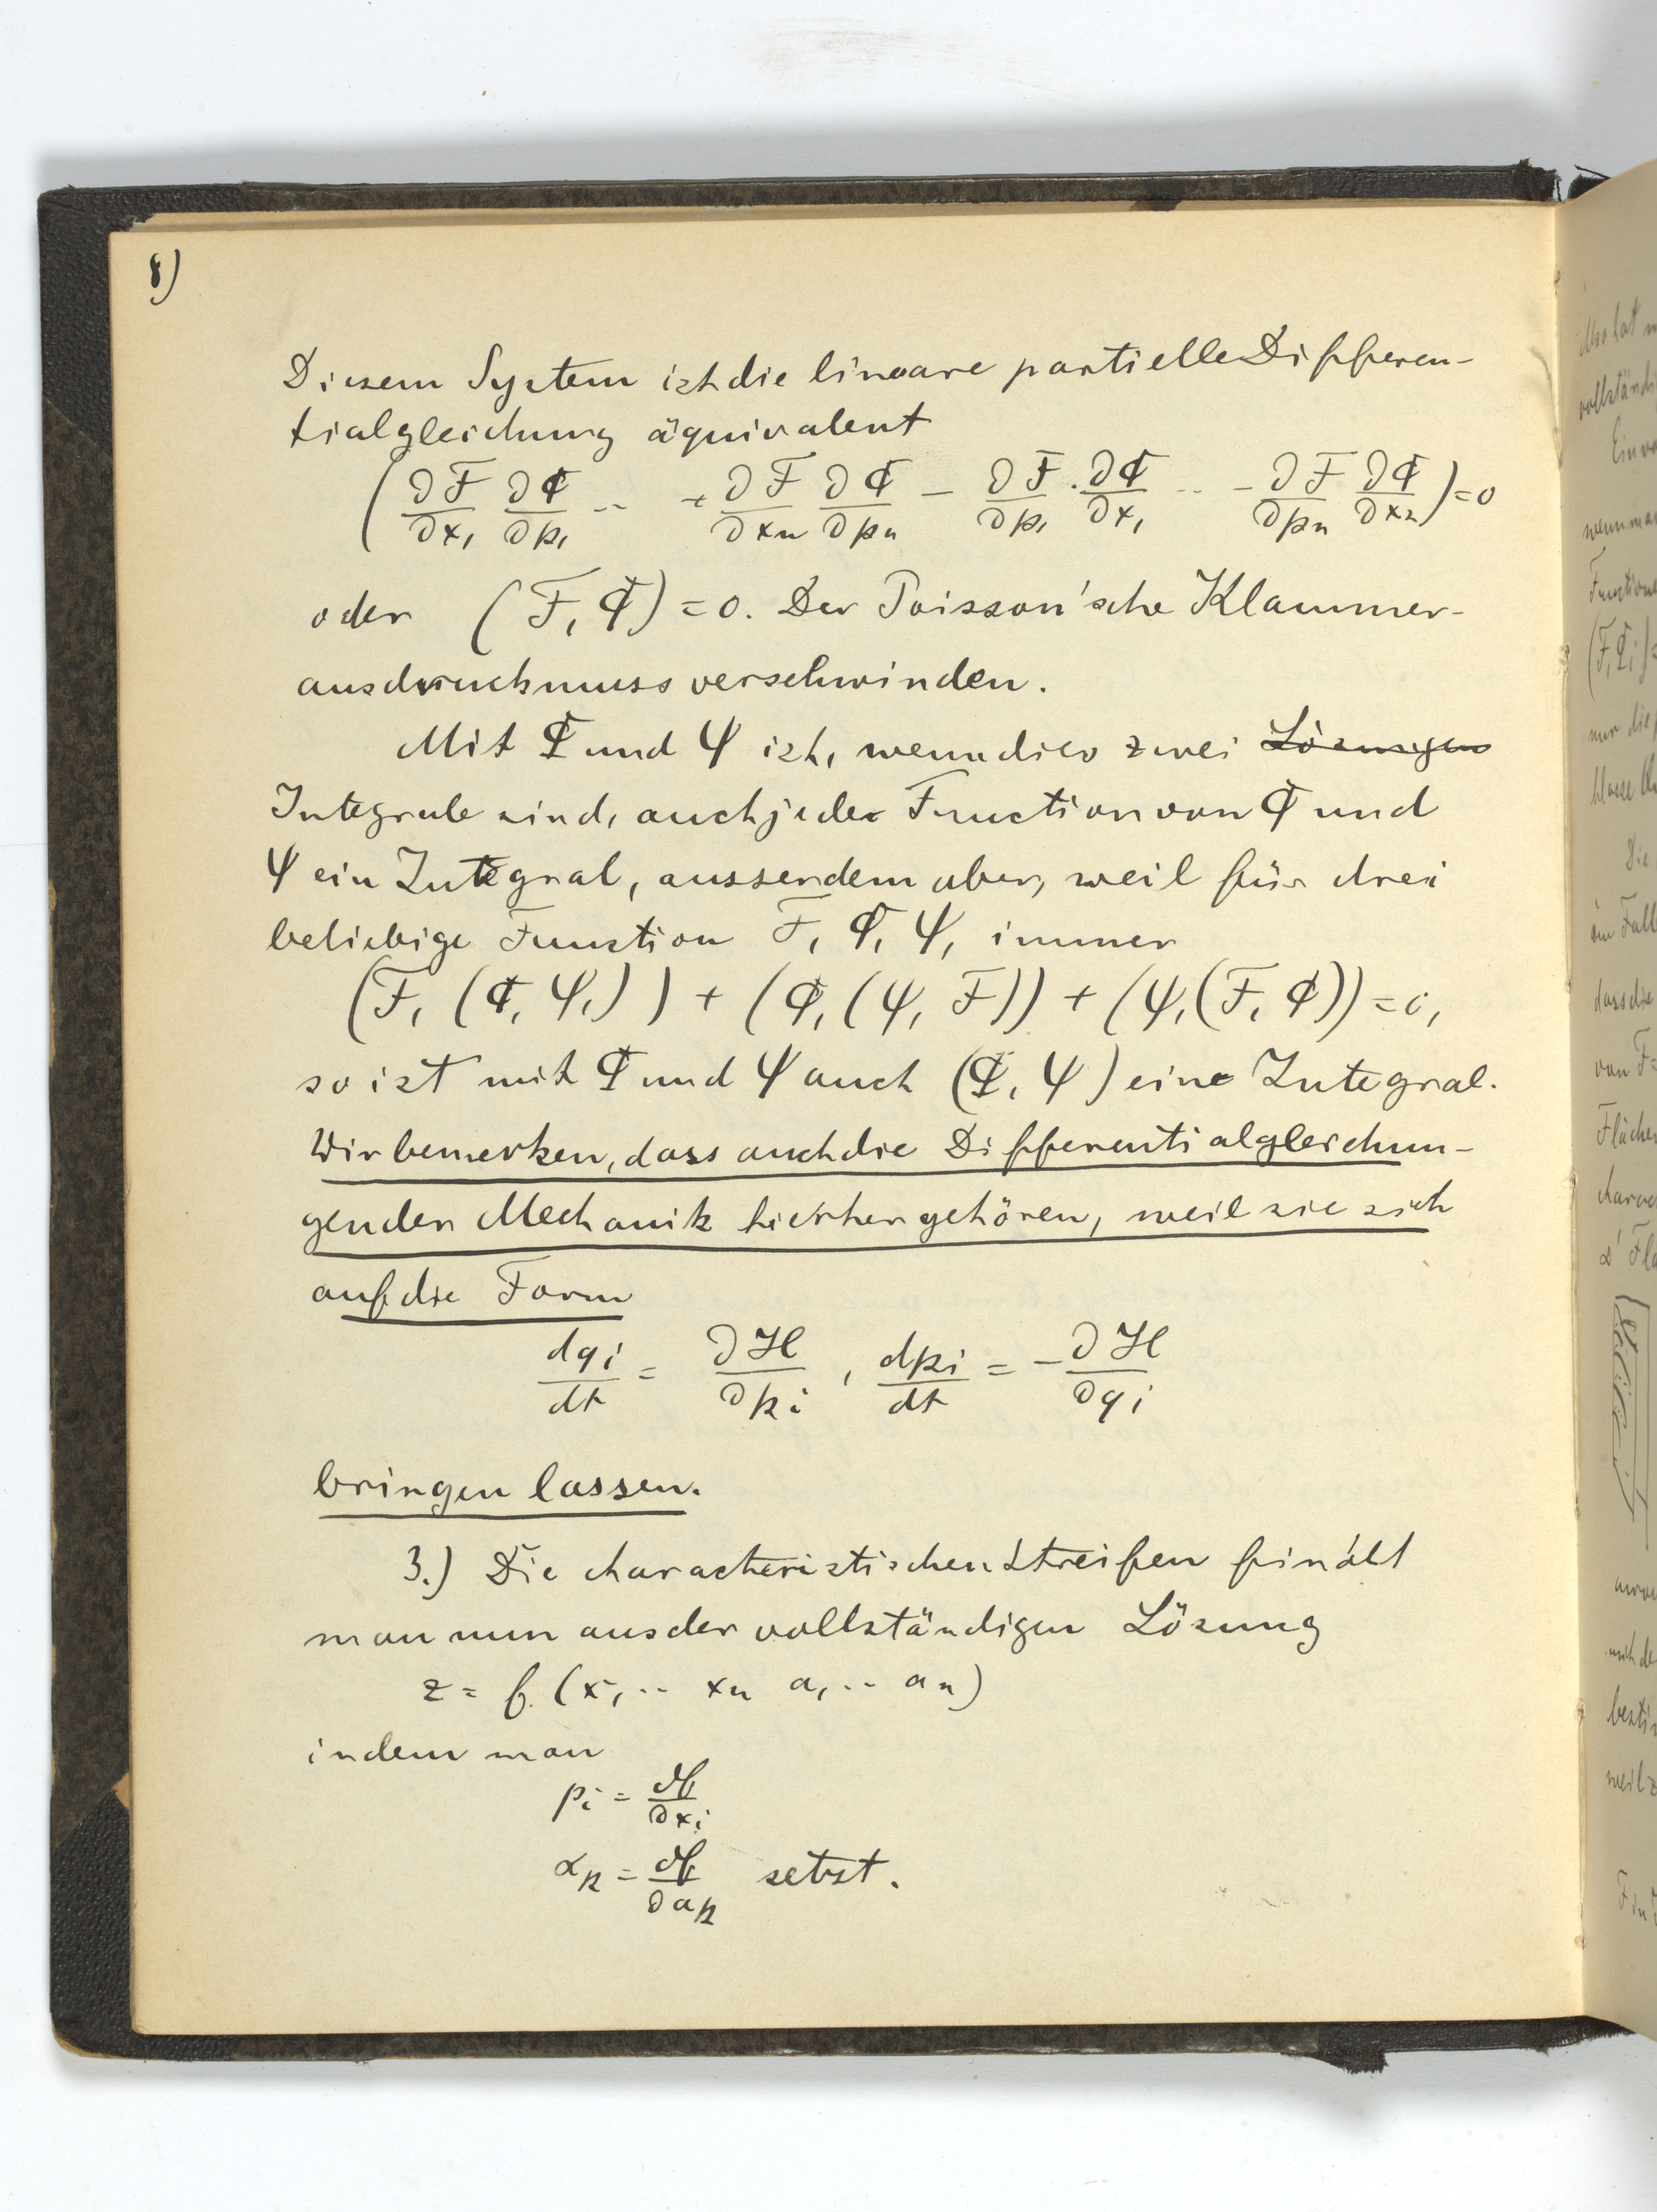 8)
Diesem System ist die lineare partielle Differen-
tialgleichung äquivalent
(∂F/∂x₁ ∂Φ/∂p₁ ·· + ∂F/∂xₙ ∂Φ/∂pₙ − ∂F/∂p₁ · ∂Φ/∂x₁ ·· − ∂F/∂pₙ ∂Φ/∂xₙ) = 0
oder (F, Φ) = 0. Der Poisson'sche Klammer-
ausdruck muss verschwinden.
Mit Φ und Ψ ist, wenn dies zwei Lösungen
Integrale sind, auch jede Function von Φ und
Ψ ein Integral, ausserdem aber, weil für drei
beliebige Funktion F, Φ, Ψ, immer
(F, (Φ, Ψ,)) + (Φ, (Ψ, F)) + (Ψ, (F, Φ)) = 0,
so ist mit Φ und Ψ auch (Φ, Ψ) ein Integral.
Wir bemerken, dass auch die Differentialgleichun-
gen der Mechanik hierher gehören, weil sie sich
auf die Form
dqᵢ/dt = ∂H/∂pᵢ , dpᵢ/dt = −∂H/∂qᵢ
bringen lassen.
3.) Die characteristischen Streifen findet
man nun aus der vollständigen Lösung
z = f (x₁ ·· xₙ a₁ ·· aₙ)
indem man
pᵢ = ∂f/∂xᵢ
αₖ = ∂f/∂aₖ setzt.